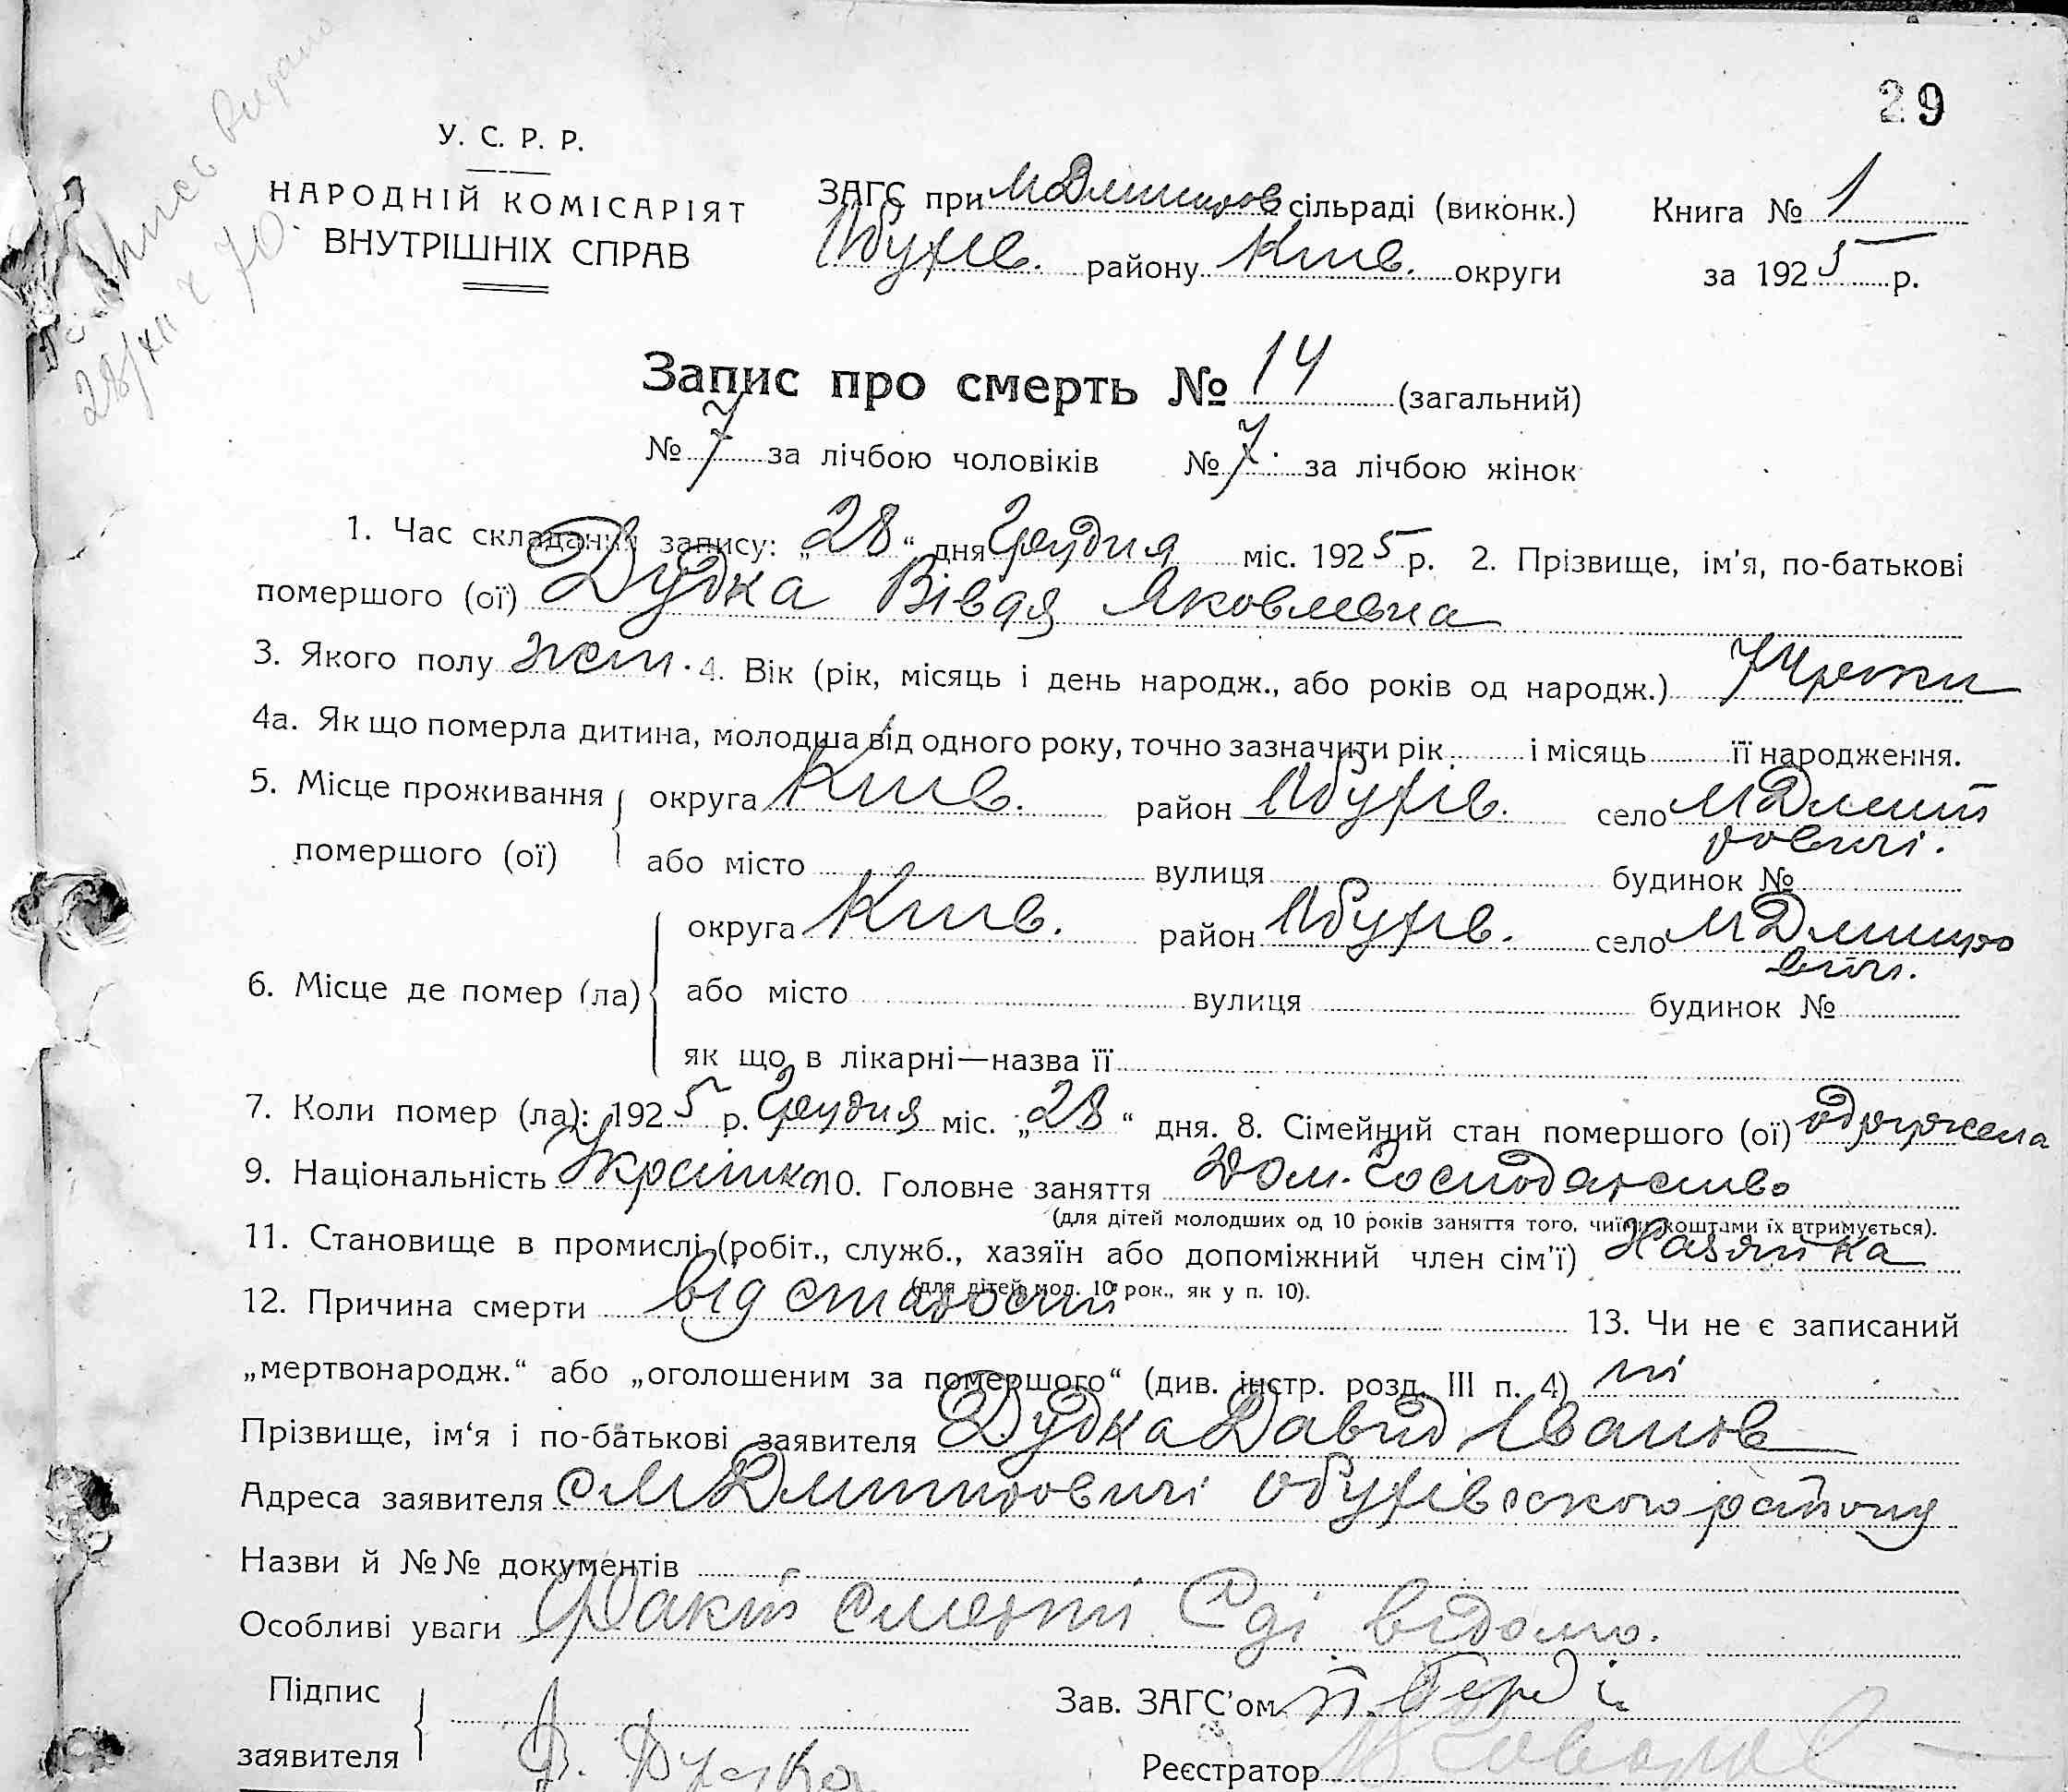 29
У. С. Р. Р.
НАРОДНІЙ КОМІСАРІЯТ
ВНУТРІШНІХ СПРАВ
ЗАГС при МДмитров сільраді (виконк.)
Обухів. району Київ. округи
Книга № 1
за 1925 р.
видано
28/XII 70.
Запис про смерть № 14 (загальний)
№ 7 за лічбою чоловіків № 7. за лічбою жінок
1. Час складання запису: „28“ дня Грудня міс. 1925 р. 2. Прізвище, ім'я, по-батькові
помершого (ої) Дудка Вівдя Яковлевна
3. Якого полу жін. 4. Вік (рік, місяць і день народж., або років од народж.) 74 роки
4а. Як що померла дитина, молодша від одного року, точно зазначити рік і місяць її народження.
5. Місце проживання помершого (ої) округа Київ. район Обухів. село МДмит
ровичі.
або місто вулиця будинок №
округа Київ. район Обухів. село МДмитро
вичі.
6. Місце де помер (ла) або місто вулиця будинок №
як що в лікарні—назва її
7. Коли помер (ла): 1925 р. Грудня міс. „28“ дня. 8. Сімейний стан помершого (ої) одружена
9. Національність Українка 10. Головне заняття Дом. господарство
(для дітей молодших од 10 років заняття того, чиїми коштами їх втримується).
11. Становище в промислі (робіт., служб., хазяїн або допоміжний член сім'ї) Хазяйка
(для дітей мол. 10 рок., як у п. 10).
12. Причина смерти від старости 13. Чи не є записаний
„мертвонародж.“ або „оголошеним за помершого“ (див. інстр. розд. III п. 4) ні
Прізвище, ім'я і по-батькові заявителя Дудка Давид Іванов
Адреса заявителя с МДмитровичі Обухівського району
Назви й №№ документів
Особливі уваги Факт смерті С/ді відомо.
Підпис
заявителя Д. Дудка
Зав. ЗАГС'ом
Реєстратор